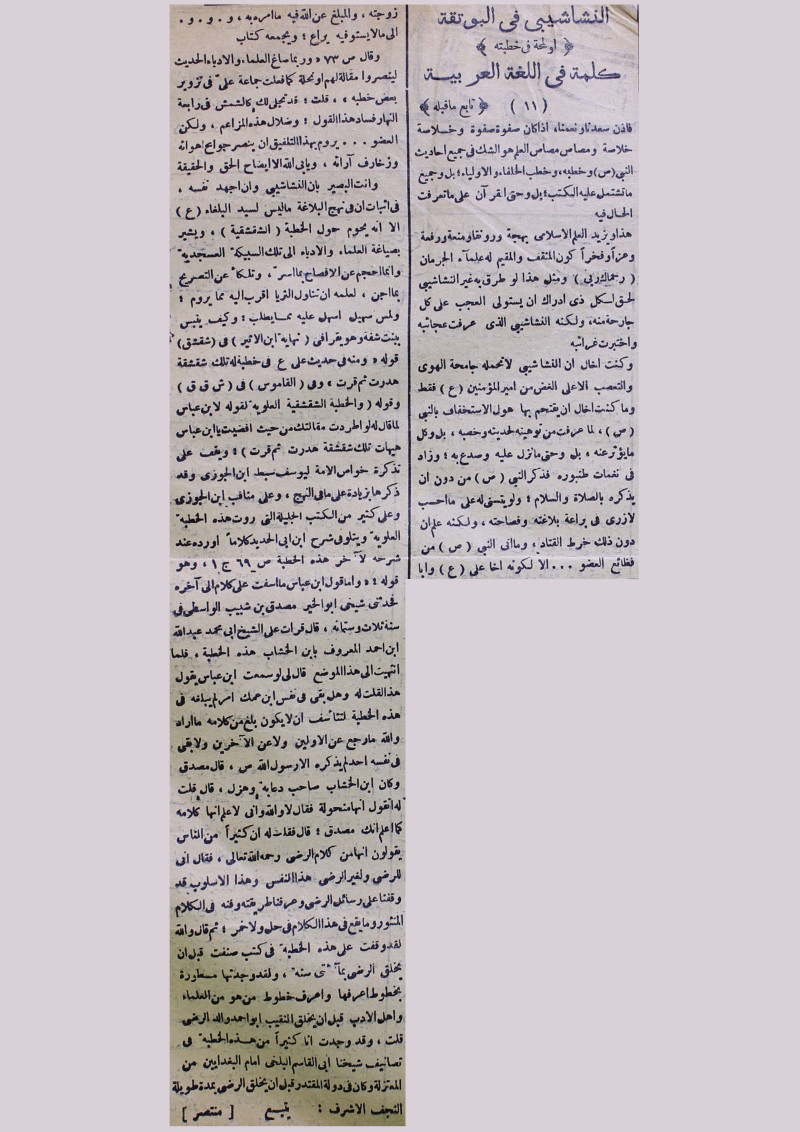 النشاشيبي في البوتقة
﴿ اونحة في خطبته ﴾
كلمة في اللغة العربية
( ١١ ) ﴿ تابع ماقبله ﴾
فاذن سعدنا ونعمنا، اذا كان صفوة صفوة وخلاصة
خلاصة ومصاص مصاص العلم هو الشك في جميع احاديث
النبي (ص) وخطبه، وخطب الخلفاء والاولياء؛ بل وجميع
ماتشتمل عليه الكتب؛ بل وحتى القرآن على ماتعرفت
الحال فيه
هذا ويزيد العلم الاسلامي بهجة ورونقا ومنعة ورفعة
وعزاً وفخراً كون المثقف والمقيم له علماء الجرمان
( رحماك ربي ) ومثل هذا لو طرق به غير النشاشيبي
لحق لكل ذي ادراك ان يستولي العجب على كل
جارحة منه، ولكنه النشاشيبي الذي عرفت عجائبه
واختبرت غرائبه
وكنت اخال ان النشاشيبي لاتحمله جامحة الهوى
والتعصب الاعلى الغض من امير المؤمنين (ع) فقط
وما كنت اخال ان يقتحم بها هول الاستخفاف بالنبي
(ص)، لما عرفت من توهينه لحديثه وخصبه، بل وكل
مايؤثر عنه، بل وحتى مانزل عليه وصدع به؛ وزاد
في نغمات طنبوره فذكر النبي (ص) من دون ان
يذكره بالصلاة والسلام؛ ولو يتسنى له على مااحسب
لازرى في براعة بلاغته وفصاحته، ولكنه علم ان
دون ذلك خرط القتاد، وماانى النبي (ص) من
فظائع العضو ... الا لكونه اخا على (ع) وابا
زوجته، والمبلغ عن الله فيه ماامره به، و. و. و.
الى مالايستوفيه يراع؛ ويجمعه كتاب
وقال ص ٧٣ « وربما صاغ العلماء والادباء الحديث
لينصروا مقالة لهم او نحلة كما فعلت جماعة علي في تزوير
بعض خطبه »، قلت: قد تجلى لك كالشمس في رابعة
النهار فساد هذا القول؛ وضلال هذه المزاعم، ولكن
العضو ... يروم بهذا التلفيق ان ينصر جوامح اهوائه
وزخارف آرائه، ويابى الله الا ايضاح الحق والحقيقة
وانت البصير بان النشاشيبي وان اجهد نفسه،
في اثبات ان في نهج البلاغة ماليس لسيد البلغاء (ع)
الا انه يحوم حول الخطبة (الشقشقية)، ويشير
بصياغة العلماء والادباء الى تلك السبيكة العسجدية
وانما احجم عن الافصاح بما اسر، وتلكأ عن التصريح
بما اجن، لعلمه ان تناول الثريا اقرب اليه مما يروم؛
ولمس سهيل اسهل عليه مما يطلب؛ وكيف ينبس
ببنت شفة وهو يقرأ في (نهاية ابن الاثير) في (شقشق)
قوله « ومنه في حديث على ع في خطبة له تلك شقشقة
هدرت ثم قرت » وفي (القاموس) في (ش ق ق)
وقوله (والخطبة الشقشقية العلوية لقوله لابن عباس
لما قال له لو اطردت مقالتك من حيث افضيت يا ابن عباس
هيهات تلك شقشقة هدرت ثم قرت)؛ ويقف على
تذكرة خواص الامة ليوسف سبط ابن الجوزي وقد
ذكرها بزيادة على مافي النهج، وعلى مناقب ابن الجوزي
وعلى كثير من الكتب الجليلة التي روت هذه الخطبة
العلوية ويتلو في شرح ابن ابي الحديد كلاماً اورده عند
شرحه لآخر هذه الخطبة ص ٦٩ ج ١، وهو
قوله: « واما قول ابن عباس ماأسفت على كلام الى آخره
فحدثني شيخي ابو الخير مصدق بن شبيب الواسطي في
سنة ثلاث وستمائة، قال قرات على الشيخ ابي محمد عبدالله
ابن احمد المعروف بابن الخشاب هذه الخطبة، فلما
انتهيت الى هذا الموضع قال لي لو سمعت ابن عباس يقول
هذا لقلت له وهل بقى في نفس ابن عمك امر لم يبلغه في
هذه الخطبة لتتأسف ان لايكون بلغ من كلامه مااراد
والله مارجع عن الاولين ولا عن الآخرين ولابقى
في نفسه احد لم يذكره الا رسول الله ص، قال مصدق
وكان ابن الخشاب صاحب دعابة وهزل، قال قلت
له اتقول انها منحولة فقال لا والله واني لاعلم انها كلامه
كما اعلم انك مصدق؛ قال فقلت له ان كثيراً من الناس
يقولون انها من كلام الرضي رحمه الله تعالى، فقال انى
للرضي ولغير الرضي هذا النفس وهذا الاسلوب قد
وقفنا على رسائل الرضي وعرفنا طريقته وفنه في الكلام
المنثور وما يقع في هذا الكلام في حل ولاخمر؛ ثم قال والله
لقد وقفت على هذه الخطبة في كتب صنفت قبل ان
يخلق الرضي بمائتي سنة، ولقد وجدتها مسطورة
بخطوط اعرفها واعرف خطوط من هو من العلماء
واهل الادب قبل ان يخلق النقيب ابو احمد والد الرضي
قلت، وقد وجدت انا كثيراً من هذه الخطبة في
تصانيف شيخنا ابي القاسم البلخي امام البغدايين من
المعتزلة وكان في دولة المقتدر قبل ان يخلق الرضي بمدة طويلة
النجف الاشرف: يتبع [ منتصر ]